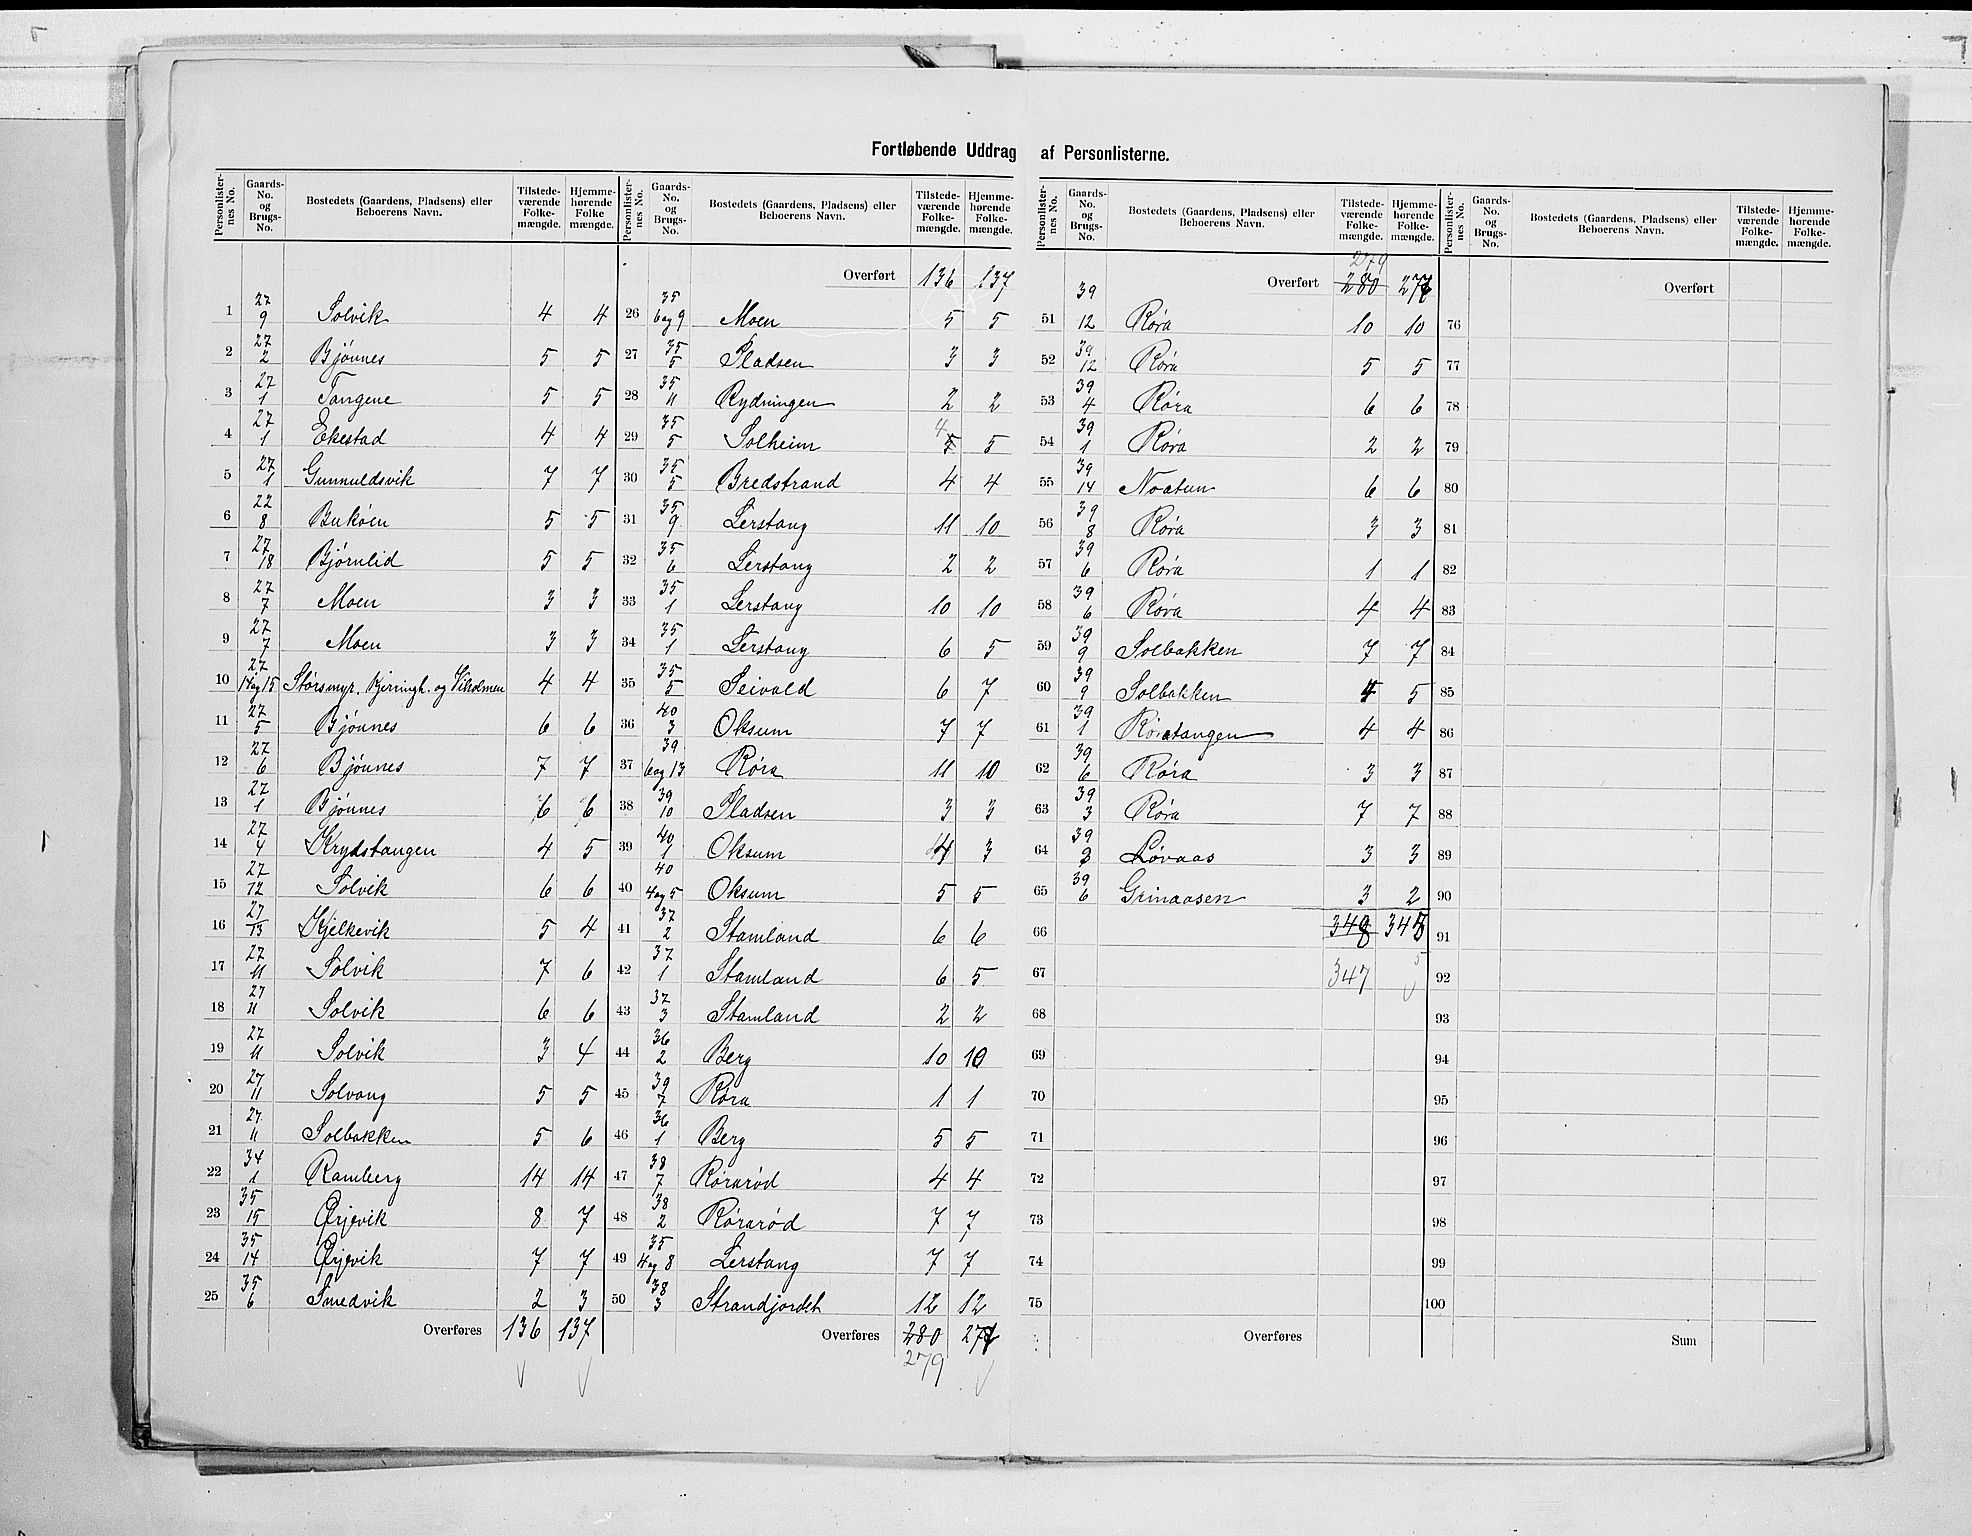 Fortløbende Uddrag af Personlisterne.
Personlister-nes No. | Gaards-No. og Brugs-No. | Bostedets (Gaardens, Pladsens) eller Beboerens Navn. | Tilstede-værende Folke-mængde. | Hjemme-hørende Folke-mængde.
1 27/9 Solvik 4 4
2 27/2 Bjønnes 5 5
3 27/1 Tangene 5 5
4 27/1 Ekestad 4 4
5 27/1 Gunnuldsvik 7 7
6 22/8 Bukøen 5 5
7 27/18 Bjørnlid 5 5
8 27/7 Moen 3 3
9 27/7 Moen 3 3
10 27/14 og 15 Størsmyr, Kjerringh. og Vikolmen 4 4
11 27/5 Bjønnes 6 6
12 27/6 Bjønnes 7 7
13 27/1 Bjønnes 6 6
14 27/4 Krydstangen 4 5
15 27/12 Solvik 6 6
16 27/13 Kjelkevik 5 4
17 27/11 Solvik 7 6
18 27/11 Solvik 6 6
19 27/11 Solvik 3 4
20 27/11 Solvang 5 5
21 27/11 Solbakken 5 6
22 34/1 Ramberg 14 14
23 35/15 Ørjevik 8 7
24 35/14 Ørjevik 7 7
25 35/6 Smedvik 2 3
Overføres 136 137
Personlister-nes No. | Gaards-No. og Brugs-No. | Bostedets (Gaardens, Pladsens) eller Beboerens Navn. | Tilstede-værende Folke-mængde. | Hjemme-hørende Folke-mængde.
Overført 136 137
26 35/6 og 9 Moen 5 5
27 35/5 Pladsen 3 3
28 35/11 Rydningen 2 2
29 35/5 Solheim 4 5 5
30 35/5 Bredstrand 4 4
31 35/9 Lerstang 11 10
32 35/6 Lerstang 2 2
33 35/1 Lerstang 10 10
34 35/1 Lerstang 6 5
35 35/5 Seivald 6 7
36 40/3 Oksum 7 7
37 39/6 og 13 Røra 11 10
38 39/10 Pladsen 3 3
39 40/1 Oksum 4 3
40 40/4 og 5 Oksum 5 5
41 37/2 Stamland 6 6
42 37/1 Stamland 6 5
43 37/3 Stamland 2 2
44 36/2 Berg 10 10
45 39/7 Røra 1 1
46 36/1 Berg 5 5
47 38/7 Rørarød 4 4
48 38/2 Rørarød 7 7
49 35/4 og 8 Lerstang 7 7
50 38/3 Strandjordet 12 12
Overføres 280
279
Personlister-nes No. | Gaards-No. og Brugs-No. | Bostedets (Gaardens, Pladsens) eller Beboerens Navn. | Tilstede-værende Folke-mængde. | Hjemme-hørende Folke-mængde.
279
Overført 280
51 39/12 Røra 10 10
52 39/12 Røra 5 5
53 39/4 Røra 6 6
54 39/1 Røra 2 2
55 39/14 Noatun 6 6
56 39/8 Røra 3 3
57 39/6 Røra 1 1
58 39/6 Røra 4 4
59 39/9 Solbakken 7 7
60 39/9 Solbakken 4 5
61 39/1 Røratangen 4 4
62 39/6 Røra 3 3
63 39/3 Røra 7 7
64 39 Løvaas 3 3
65 39/6 Grinaasen 3 2
66
67 347 5
68
69
70
71
72
73
74
75
Overføres
Personlister-nes No. | Gaards-No. og Brugs-No. | Bostedets (Gaardens, Pladsens) eller Beboerens Navn. | Tilstede-værende Folke-mængde. | Hjemme-hørende Folke-mængde.
Overført
76
77
78
79
80
81
82
83
84
85
86
87
88
89
90
91
92
93
94
95
96
97
98
99
100
Sum